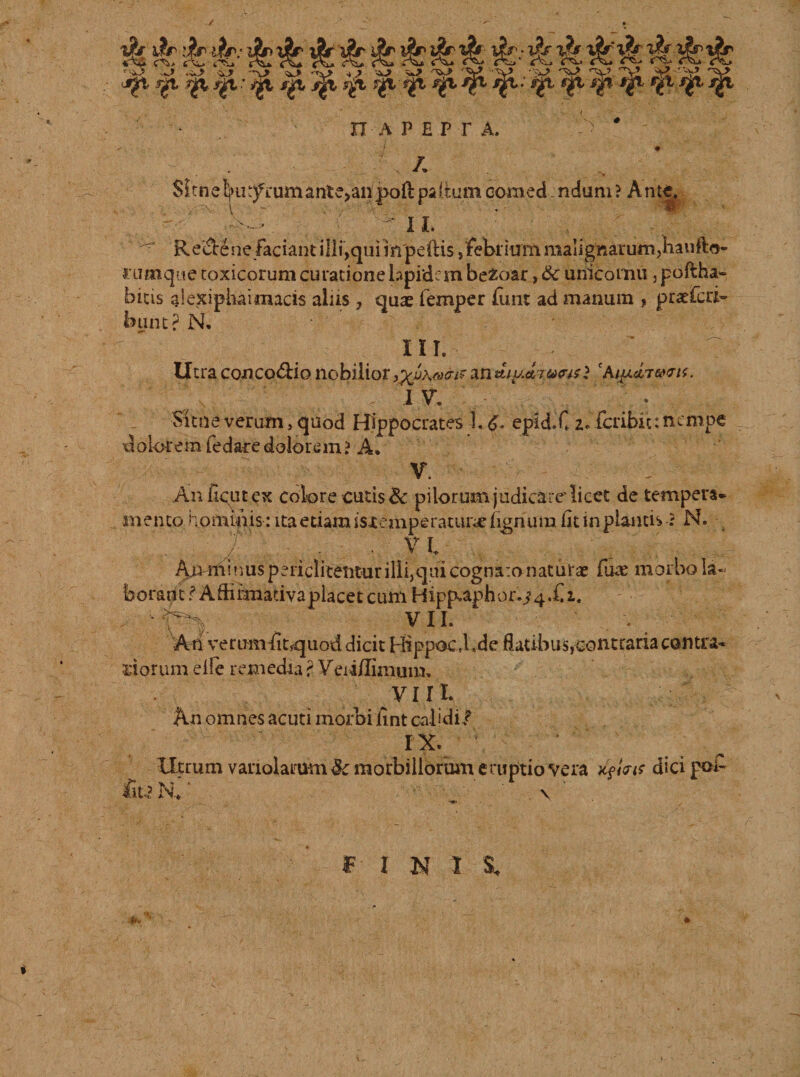 ΠΑΡΕΡΓΑ.
I.
Sitne butyrum ante, an post pastum comedendum? Ante.
II.
Rectène faciant illi, qui in pestis, febrium malignarum, hausto-
rumque toxicorum curatione lapidem bezoar, & unicornu, postha-
bitis alexipharmacis aliis, quæ semper sunt ad manum, præscri-
bunt? N.
III.
Utra concoctio nobilior, χύλωσις an αἱμάτωσις? Ἁιμάτωσις.
IV.
Sitne verum, quod Hippocrates l. 6. epid. s. 2. scribit: nempe
dolorem sedare dolorem? A.
V.
An sicut ex colore cutis & pilorum judicare licet de tempera-
mento hominis: ita etiam is temperaturæ signum sit in plantis? N.
VI.
An minus periclitentur illi, qui cognato naturæ suæ morbo la-
borant? Affirmativa placet cum Hipp. aphor. 34. s. 2.
VII.
An verum sit, quod dicit Hippoc. l. de flatibus, contraria contra-
riorum esse remedia? Verissimum.
VIII.
An omnes acuti morbi sint calidi?
IX.
Utrum variolarum & morbillorum eruptio vera κρίσις dici pos-
sit? N.
FINIS.